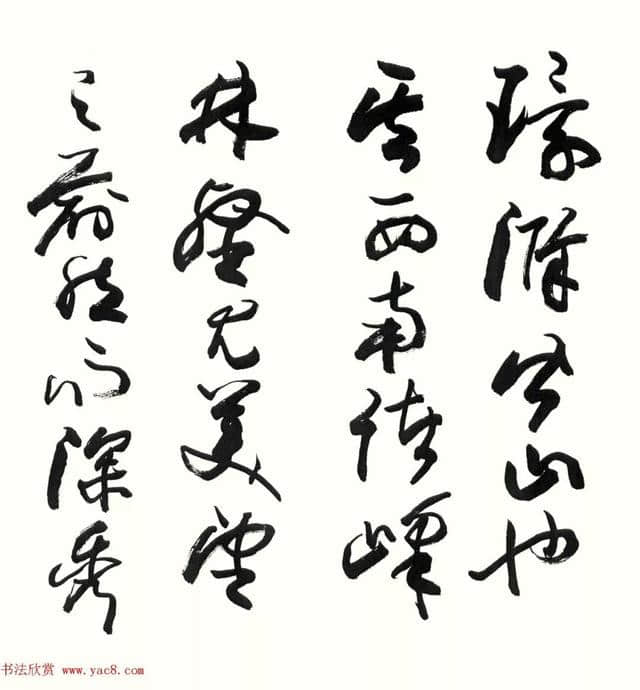 環滁皆山也
其西南諸峰
林壑尤美望
之蔚然而深秀
书法欣赏 www.yac8.com